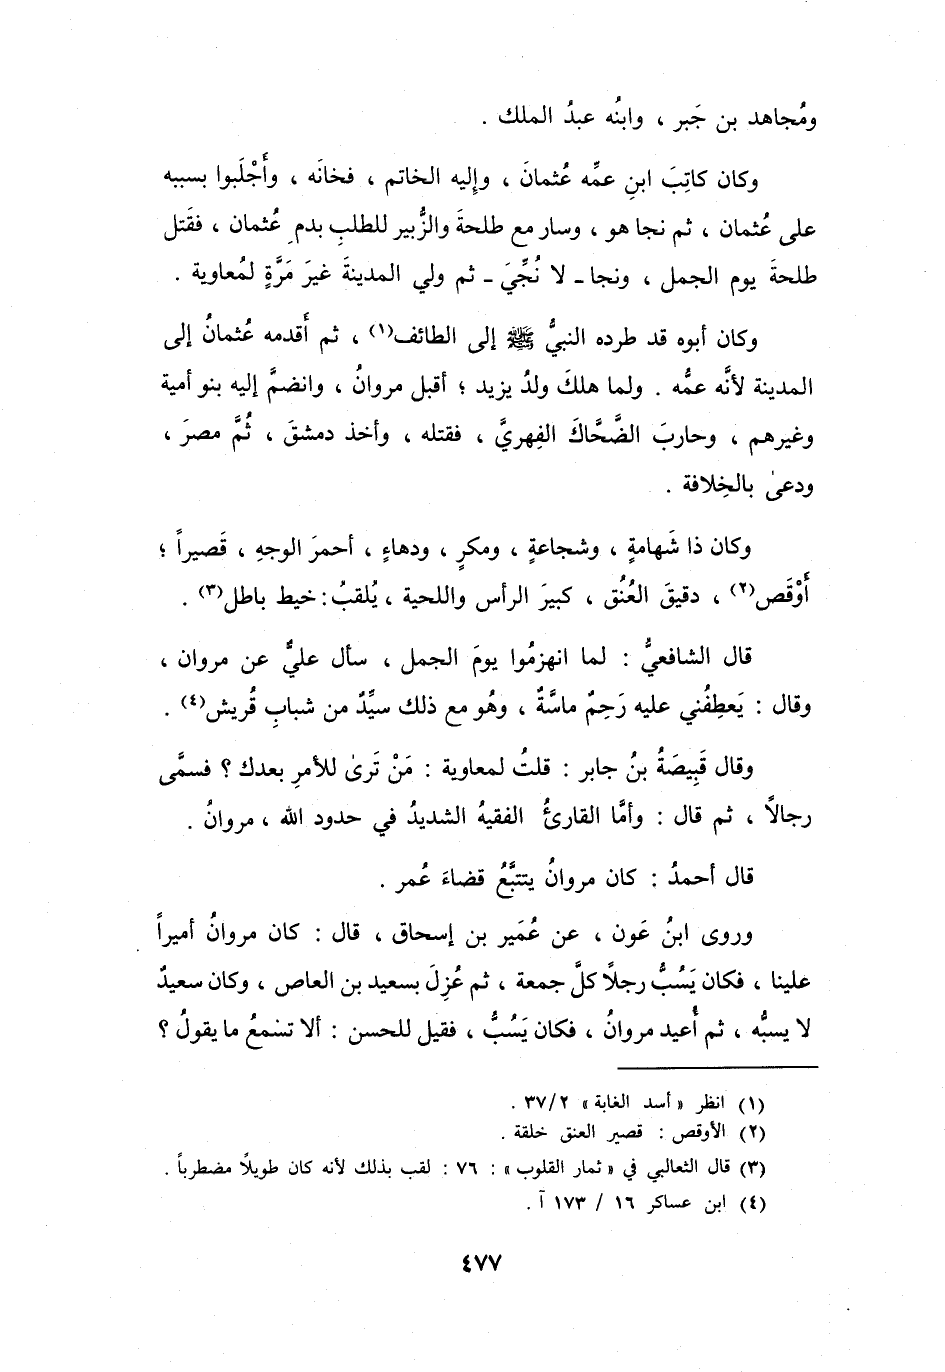 ومُجاهد بن جَبر ، وابنُه عبدُ الملك .
وكان كاتِبَ ابنِ عمِّه عُثمانَ ، وإليه الخاتم ، فخانَه ، وأَجْلَبوا بسببه
على عُثمان ، ثم نجا هو ، وسار مع طلحةَ والزُّبير للطلبِ بدمِ عُثمان ، فقَتل
طلحةَ يوم الجمل ، ونجا ـ لا نُجِّيَ ـ ثم ولي المدينةَ غيرَ مَرَّةٍ لمُعاوية .
وكان أبوه قد طرده النبيُّ ﷺ إلى الطائف(١) ، ثم أَقدمه عُثمانُ إلى
المدينة لأنَّه عمُّه . ولما هلكَ ولدُ يزيد ؛ أقبل مروانُ ، وانضمَّ إليه بنو أمية
وغيرهم ، وحاربَ الضَّحَّاكَ الفِهريَّ ، فقتله ، وأخذ دمشقَ ، ثُمَّ مصرَ ،
ودعىٰ بالخِلافة .
وكان ذا شَهامةٍ ، وشجاعةٍ ، ومكرٍ ، ودهاءٍ ، أحمرَ الوجهِ ، قَصيراً ؛
أَوْقَص(٢) ، دقيقَ العُنُق ، كبيرَ الرأس واللحية ، يُلقبُ : خيط باطل(٣) .
قال الشافعيُّ : لما انهزمُوا يومَ الجمل ، سأل عليٌّ عن مروان ،
وقال : يَعطِفُني عليه رَحِمٌ ماسَّةٌ ، وهُو مع ذلك سيِّدٌ من شبابِ قُريش(٤) .
وقال قَبِيصَةُ بنُ جابر : قلتُ لمعاوية : مَنْ تَرىٰ للأمرِ بعدك ؟ فسمَّى
رجالاً ، ثم قال : وأمَّا القارئُ الفقيهُ الشديدُ في حدود الله ، مروانُ .
قال أحمدُ : كان مروانُ يتتبَّعُ قضاءَ عُمر .
وروى ابنُ عَون ، عن عُمَير بن إسحاق ، قال : كان مروانُ أميراً
علينا ، فكان يَسُبُّ رجلاً كلَّ جمعة ، ثم عُزِلَ بسعيد بن العاص ، وكان سعيدٌ
لا يسبُّه ، ثم أُعيد مروانُ ، فكان يَسُبُّ ، فقيل للحسن : ألا تسْمعُ ما يقولُ ؟
(١) انظر « أسد الغابة » ٣٧/٢ .
(٢) الأوقص : قصير العنق خلقة .
(٣) قال الثعالبي في « ثمار القلوب » : ٧٦ : لقب بذلك لأنه كان طويلاً مضطرباً .
(٤) ابن عساكر ١٦ / ١٧٣ آ .
٤٧٧